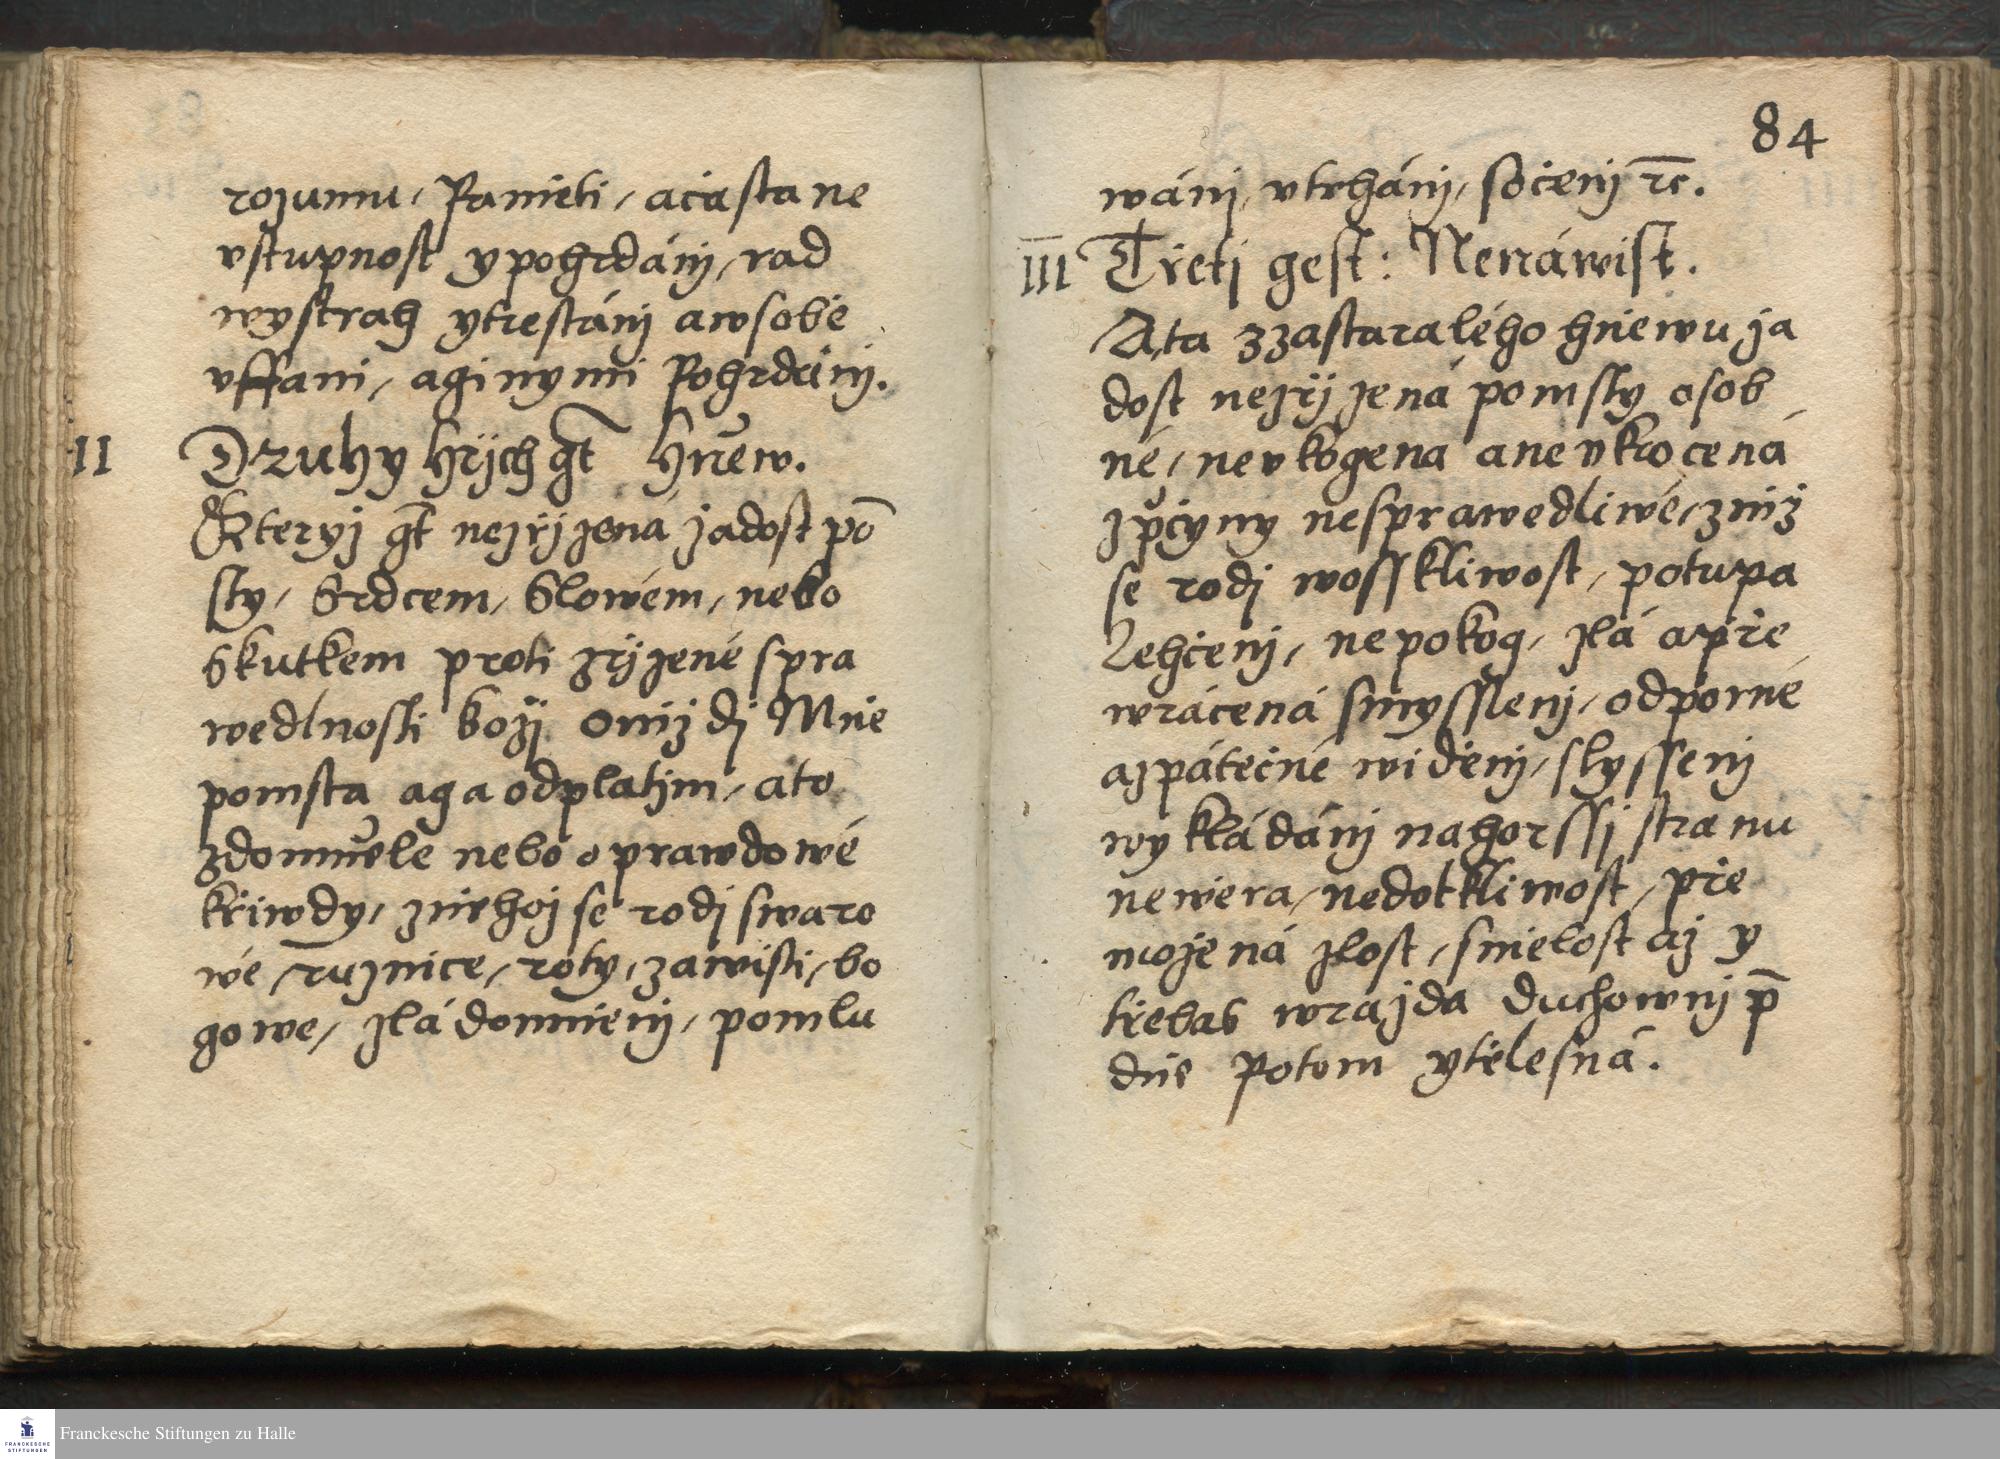 rozumu, Pamieti, ačasta ne
vstupnost ypohrdánj, rad
wystrah ytrestánj awsobě
vffani, aginymi Pohrdánj.
II Druhy hřjch gt̄ hněw.
Kteryj gt̄ nezřjzená zadost pō
sty, Srdcem, Slowem, nebo
Skutkem proti zřjzené spra
wedlnosti božj onjž dj Mnie
pomsta aga odplatjm, ato
zdomněle nebo oprawdowé
křiwdy, zniehož se rodj swaro
wé, ruznice, roty, zawisti, bo
gowe, zlá domnienj, pomlu
84
wánj, vtrhánj, sočenj ꝛc.
III Třetj gest: Nenáwist.
Ata zzastaralého hniewu ža
dost nezřjzená pomsty osob
né, nevkogena anevkrocená
zpčjyny nesprawedliwé, zniž
se rodj wosskliwost, potupa
Lehčenj, nepokog, zlá apře
wrácená smysslenj, odporné
azpátečné widěnj, slyssenj
wykládánj nahorssj stranu
newiera, nedotkliwost, pře
možená zlost, smielost až y
třebas wražda duchownj p̄
dnie Potom ytělesná.
Franckesche Stiftungen zu Halle
FRANCKESCHE
STIFTUNGEN